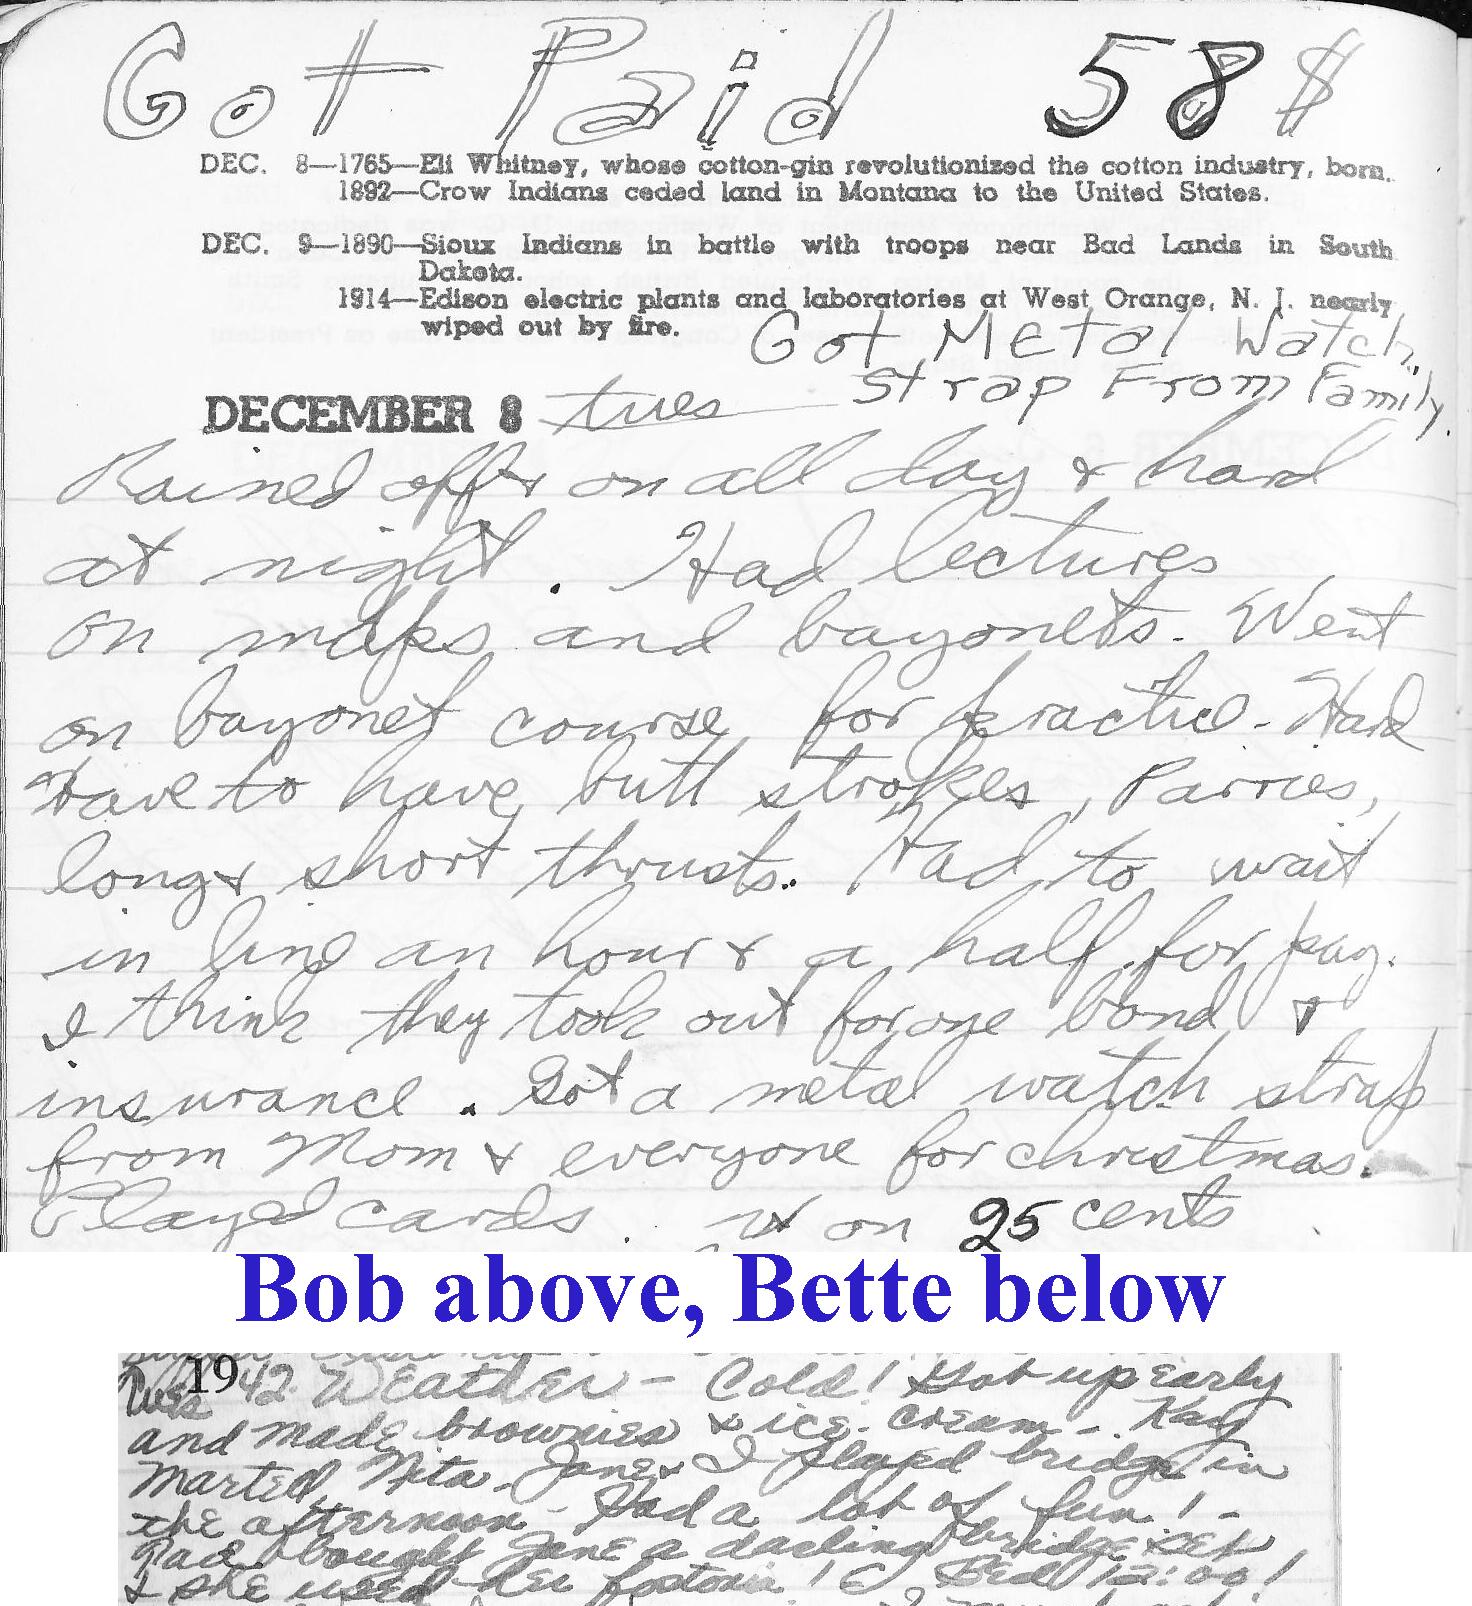 Got Paid 58 $
DEC. 8—1765—Eli Whitney, whose cotton-gin revolutionized the cotton industry, born.
1892—Crow Indians ceded land in Montana to the United States.
DEC. 9—1890—Sioux Indians in battle with troops near Bad Lands in South
Dakota.
1914—Edison electric plants and laboratories at West Orange, N. J. nearly
wiped out by fire.
Got Metal Watch
Strap From Family.
DECEMBER 8 tues
Rained off & on all day & hard
at night. Had lectures
on maps and bayonets. Went
on bayonet course for practice. Hard
Have to have butt strokes, Parries,
long & short thrusts. Had to wait
in line an hour & a half for pay.
I think they took out for one bond &
insurance. Got a metal watch strap
from Mom & everyone for christmas.
Played cards. on 25 cents
Bob above, Bette below
Tues 1942 Weather - Cold! Got up early
and made brownies & ice cream - Kay
Martell, Nita, Jane & I played bridge in
the afternoon - Had a lot of fun! -
bought Jane a darling bridge set
& she used her fostoria! Bed 12:00!